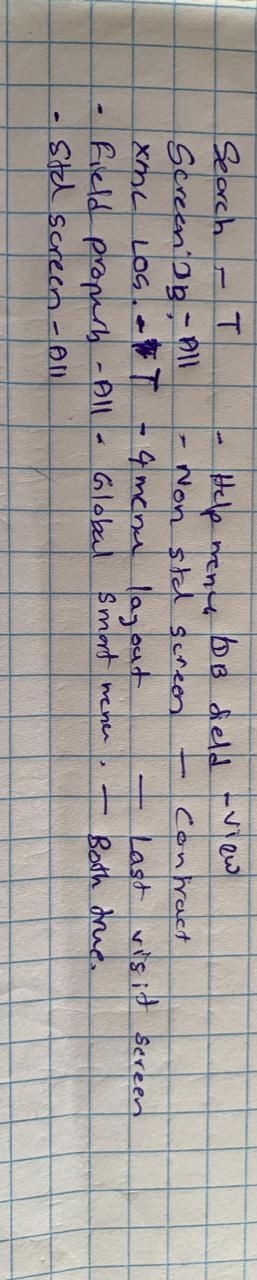 Search - T - Help menu DB field - view
Screen DB, - All - Non std screen - Contract
XML LOG. - T - 4 menu layout - Last visit screen
- Field property - All - Global Smart menu. - Both true.
- Std screen - All